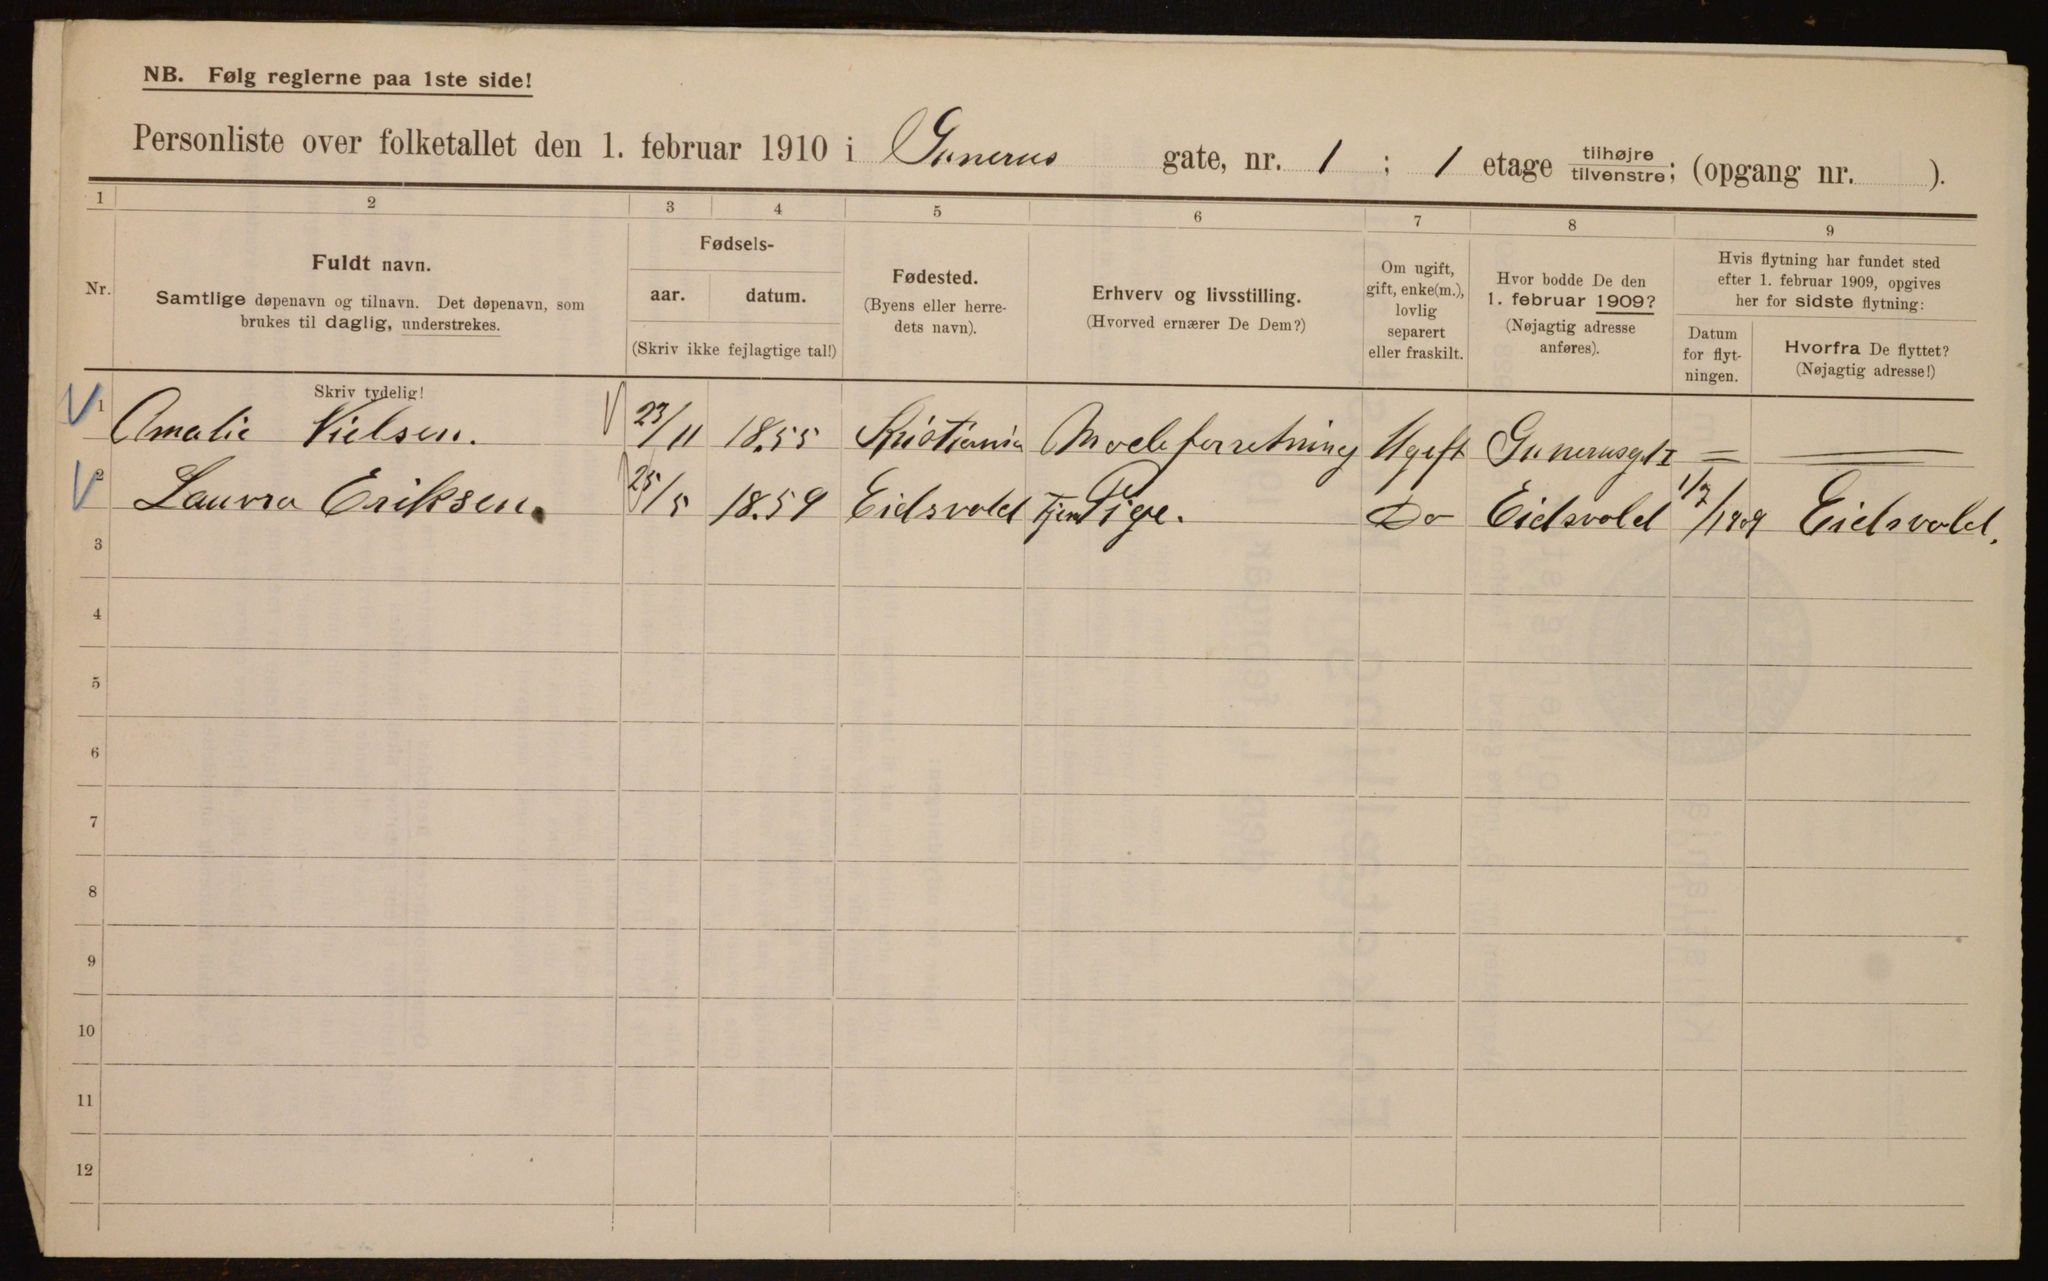 NB. Følg reglerne paa 1ste side!
Personliste over folketallet den 1. februar 1910 i Gunerus gate, nr. 1 ; 1 etage tilhøjre tilvenstre; (opgang nr. ).
1 2 3 4 5 6 7 8 9
Nr.
Fuldt navn.
Samtlige døpenavn og tilnavn. Det døpenavn, som
brukes til daglig, understrekes.
Skriv tydelig!
Fødsels-
aar. datum.
(Skriv ikke fejlagtige tal!)
Fødested.
(Byens eller herre-
dets navn).
Erhverv og livsstilling.
(Hvorved ernærer De Dem?)
Om ugift,
gift, enke(m.),
lovlig
separert
eller fraskilt.
Hvor bodde De den
1. februar 1909?
(Nøjagtig adresse
anføres).
Hvis flytning har fundet sted
efter 1. februar 1909, opgives
her for sidste flytning:
Datum
for flyt-
ningen.
Hvorfra De flyttet?
(Nøjagtig adresse!)
1 Amalie Nielsen. 23/11 18.55 Kristiania Modeforretning Ugift Gunerusgt 1 =
2 Laura Eriksen. 25/5 18.59 Eidsvold Tjen Pige. Do Eidsvold 1/7/1909 Eidsvold.
3
4
5
6
7
8
9
10
11
12